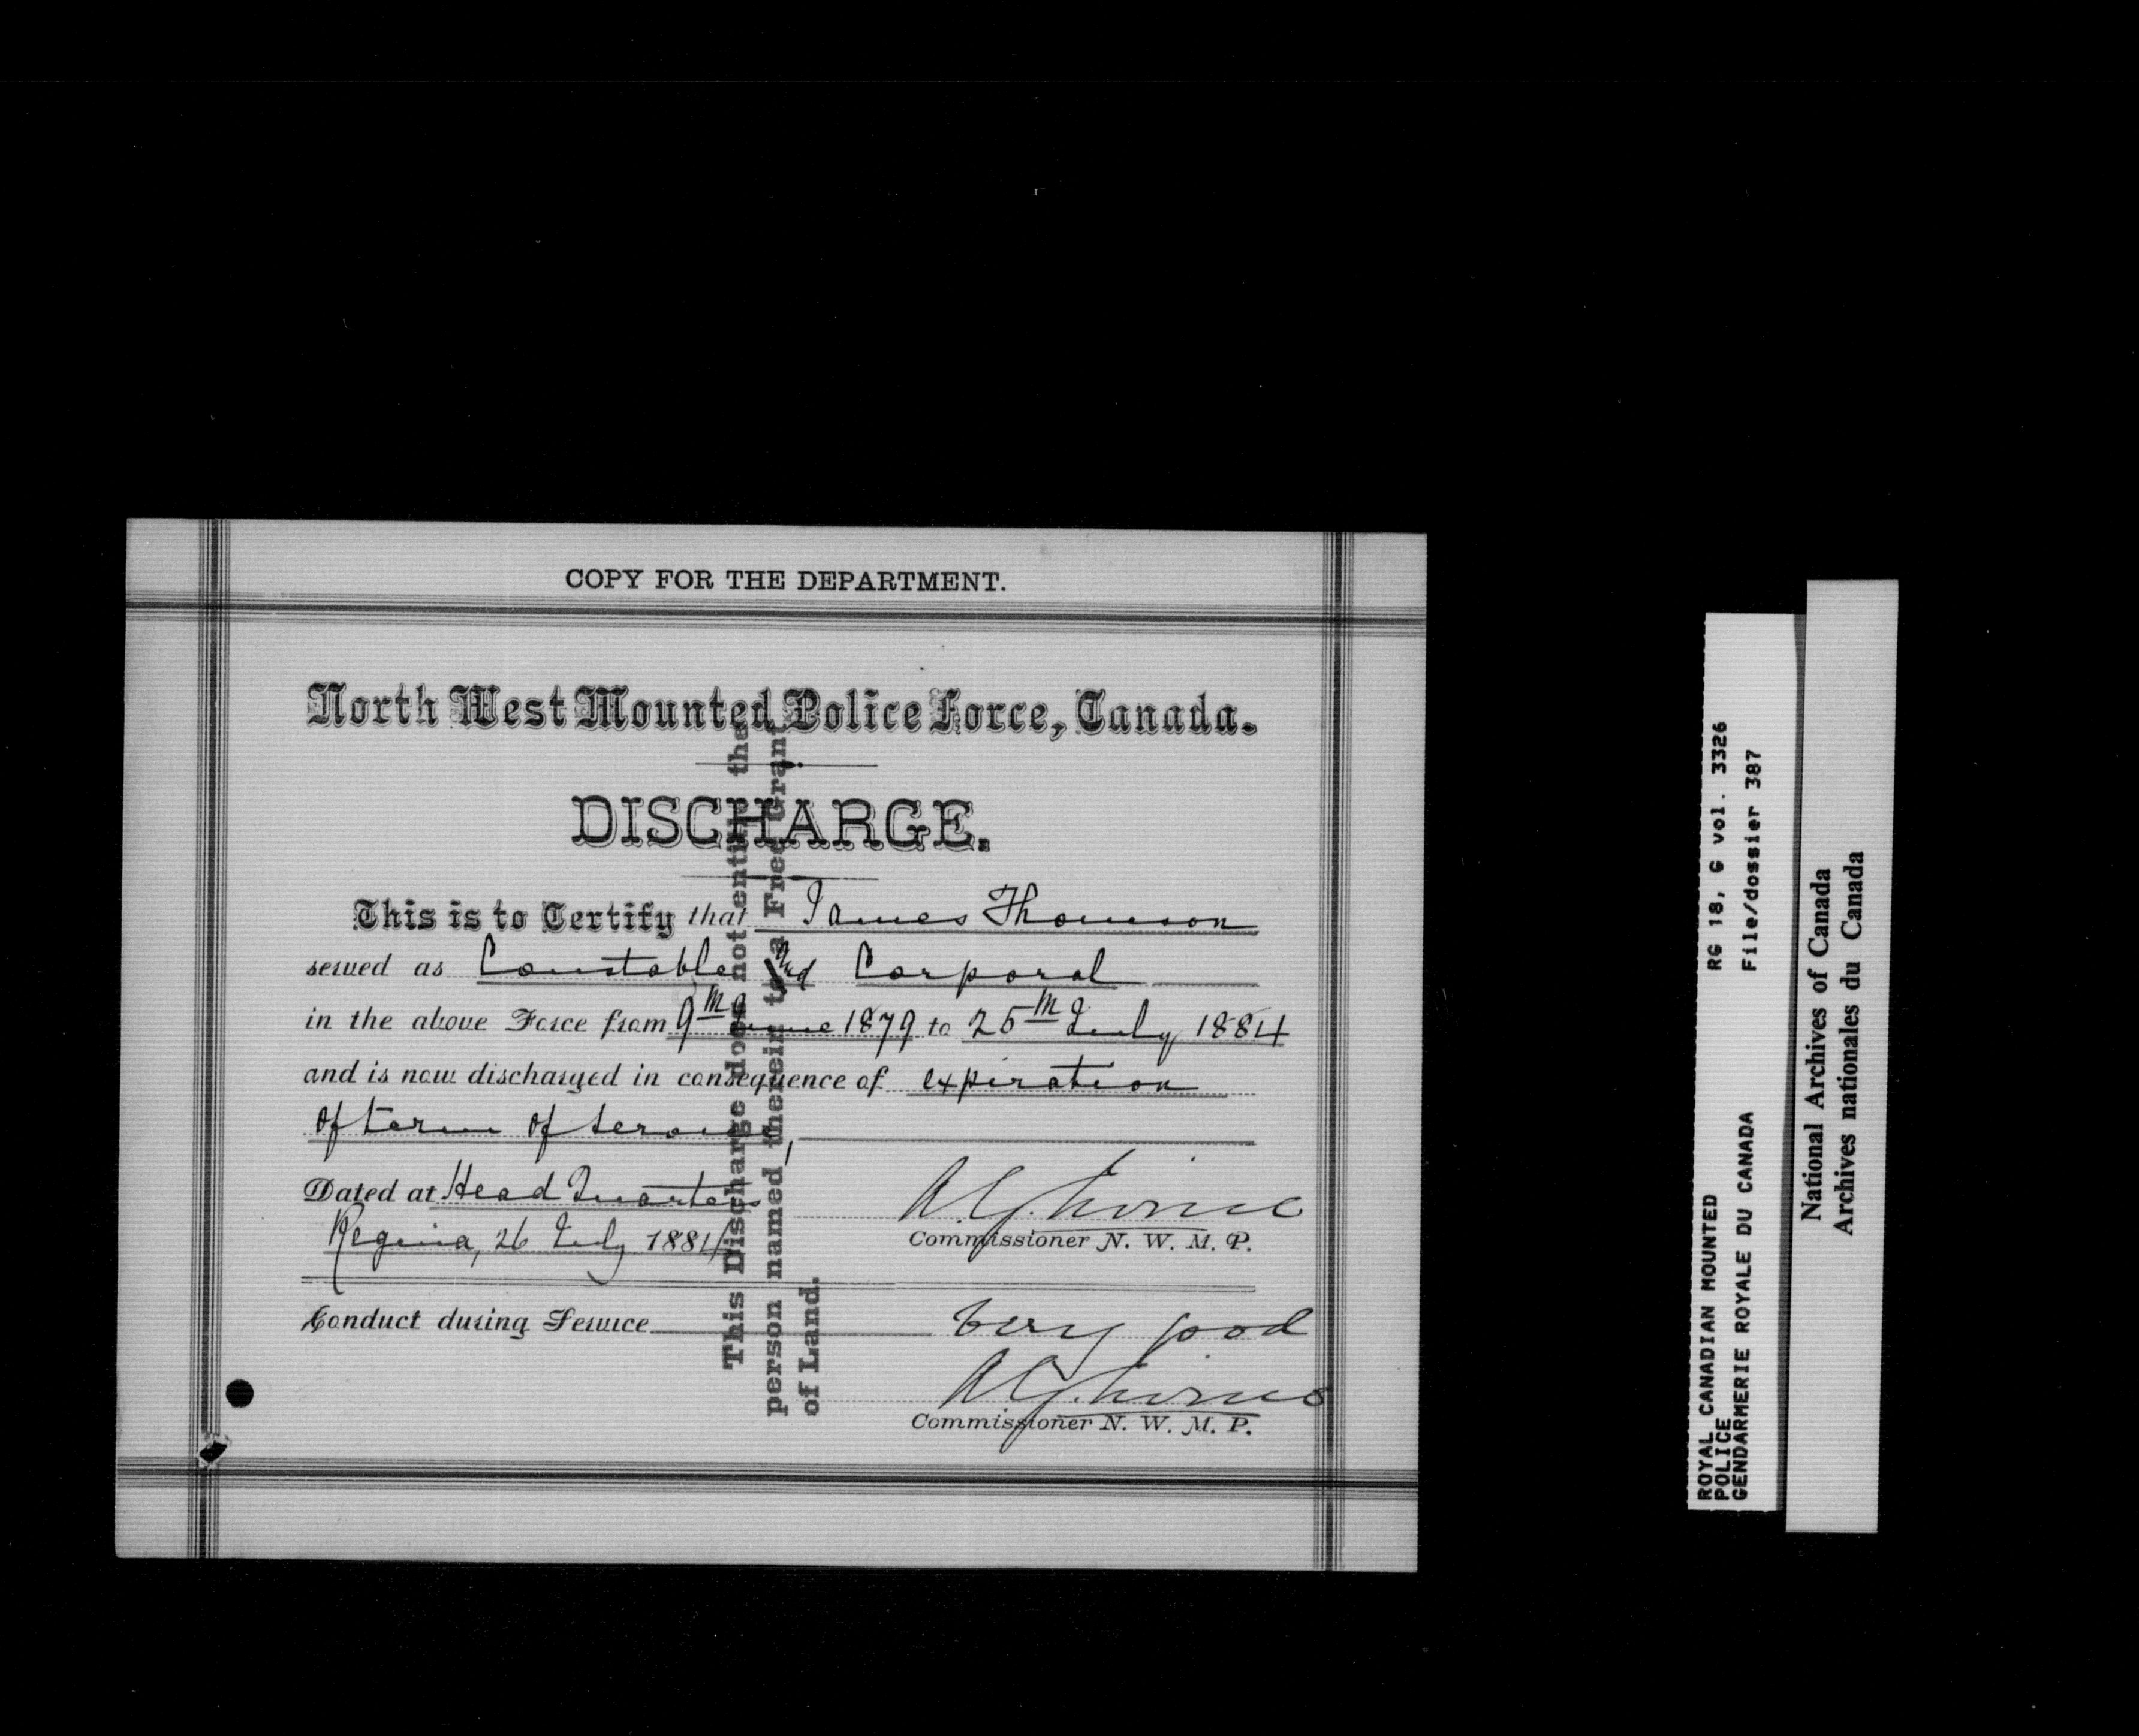 COPY FOR THE DEPARTMENT.
North West Mounted Police Force, Canada.
DISCHARGE.
This is to Certify that James Thomson
served as Constable and Corporal
in the above Force from 9th June 1879 to 25th July 1884
and is now discharged in consequence of expiration
of term of service,
Dated at Head Quarters
Regina, 26 July 1884
A.G. Irvine
Commissioner N. W. M. P.
Conduct during Service very good
A.G. Irvine
Commissioner N. W. M. P.
This Discharge does not entitle the
person named therein to a Free Grant
of Land.
ROYAL CANADIAN MOUNTED
POLICE
GENDARMERIE ROYALE DU CANADA
RG 18, G vol. 3326
File/dossier 387
National Archives of Canada
Archives nationales du Canada